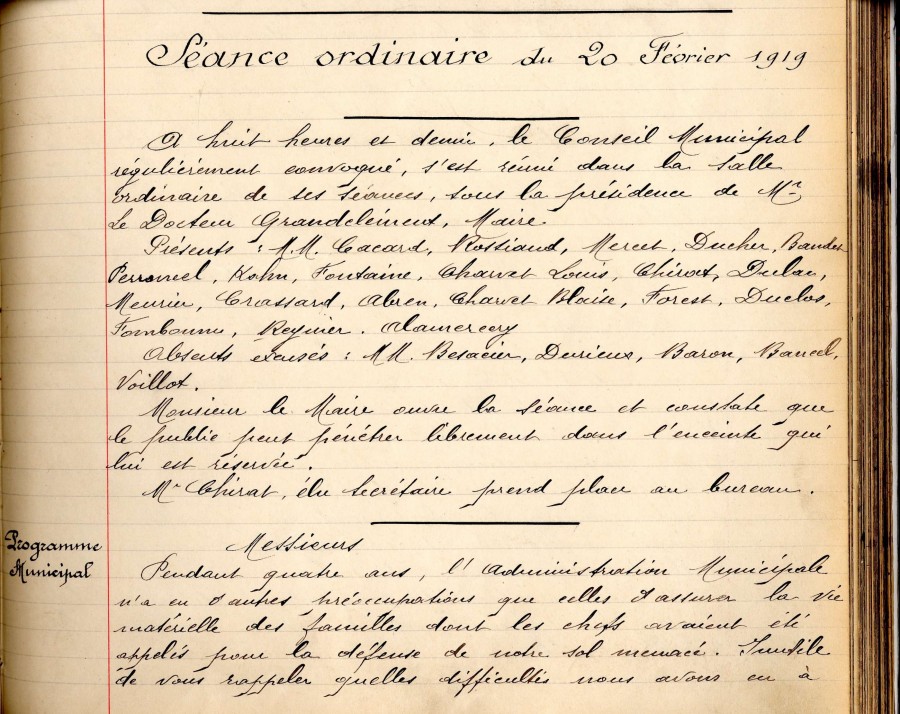 Séance ordinaire du 20 Février 1919
A huit heures et demie, le Conseil Municipal
régulièrement convoqué, s'est réuni dans la salle
ordinaire de ses séances, sous la présidence de Mr
Le Docteur Grandclément, Maire
Présents : M.M. Cacard, Rossiaud, Mercet, Ducher, Bandet
Perronnel, Kohn, Fontaine, Charvet Louis, Chirat, Dulac,
Meurin, Crassard, Abren, Charvet Blaise, Forest, Duclos,
Fombonne, Reynier, Lamercery
Absents excusés : MM. Besacier, Durieux, Baron, Bancel,
Voillot.
Monsieur le Maire ouvre la séance et constate que
le public peut pénétrer librement dans l'enceinte qui
lui est réservée.
Mr Chirat, élu secrétaire prend place au bureau.
Programme
Municipal
Messieurs
Pendant quatre ans, l'Administration Municipale
n'a eu d'autres préoccupations que celles d'assurer la vie
matérielle des familles dont les chefs avaient été
appelés pour la défense de notre sol menacé. Inutile
de vous rappeler quelles difficultés nous avons eu à